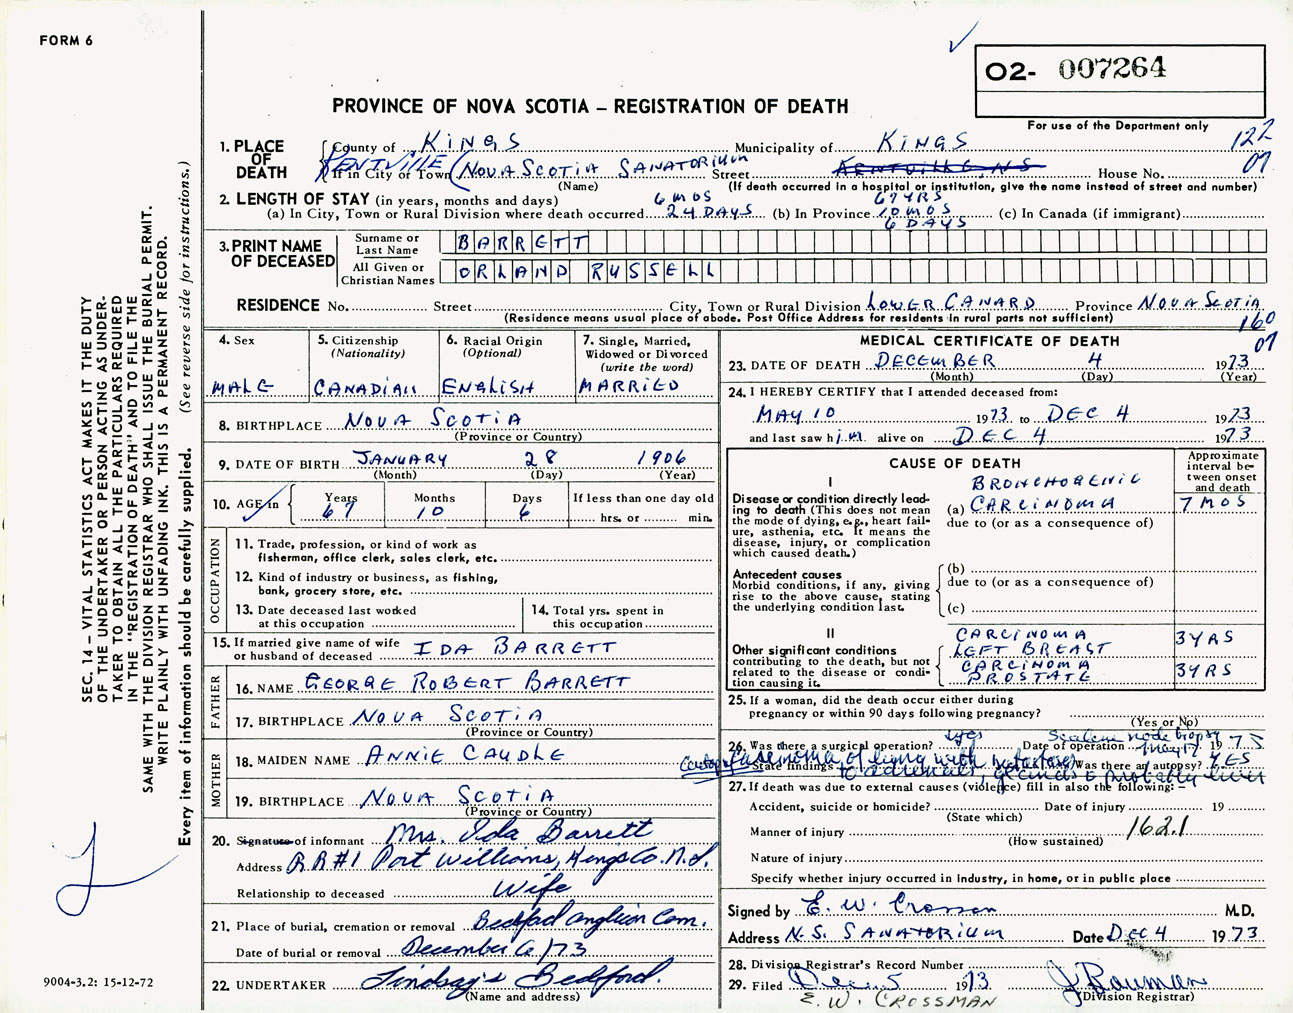 FORM 6
O2- 007264
PROVINCE OF NOVA SCOTIA – REGISTRATION OF DEATH
For use of the Department only
122
07
1. PLACE OF DEATH
County of KINGS Municipality of KINGS
KENTVILLE
If in City or Town (NOVA SCOTIA SANATORIUM Street KENTVILLE N S House No.
(Name) (If death occurred in a hospital or institution, give the name instead of street and number)
2. LENGTH OF STAY (in years, months and days) 6 MOS 67 YRS
(a) In City, Town or Rural Division where death occurred 24 DAYS (b) In Province 10 MOS (c) In Canada (if immigrant)
6 DAYS
3. PRINT NAME OF DECEASED
Surname or Last Name BARRETT
All Given or Christian Names ORLAND RUSSELL
RESIDENCE No. Street City, Town or Rural Division LOWER CANARD Province NOVA SCOTIA
(Residence means usual place of abode. Post Office Address for residents in rural parts not sufficient)
160
07
4. Sex
MALE
5. Citizenship
(Nationality)
CANADIAN
6. Racial Origin
(Optional)
ENGLISH
7. Single, Married, Widowed or Divorced
(write the word)
MARRIED
8. BIRTHPLACE NOVA SCOTIA
(Province or Country)
9. DATE OF BIRTH JANUARY 28 1906
(Month) (Day) (Year)
10. AGE in Years Months Days If less than one day old
67 10 6 hrs. or min.
OCCUPATION
11. Trade, profession, or kind of work as
fisherman, office clerk, sales clerk, etc.
12. Kind of industry or business, as fishing,
bank, grocery store, etc.
13. Date deceased last worked
at this occupation
14. Total yrs. spent in
this occupation
15. If married give name of wife
or husband of deceased IDA BARRETT
FATHER
16. NAME GEORGE ROBERT BARRETT
17. BIRTHPLACE NOVA SCOTIA
(Province or Country)
MOTHER
18. MAIDEN NAME ANNIE CAUDLE
19. BIRTHPLACE NOVA SCOTIA
(Province or Country)
20. Signature of informant Mrs. Ida Barrett
Address RR#1 Port Williams, Kings Co. N.S.
Relationship to deceased Wife
21. Place of burial, cremation or removal Bedford Anglion Cem.
Date of burial or removal December 6/73
22. UNDERTAKER Lindsay's Bedford.
(Name and address)
MEDICAL CERTIFICATE OF DEATH
23. DATE OF DEATH DECEMBER 4 1973
(Month) (Day) (Year)
24. I HEREBY CERTIFY that I attended deceased from:
MAY 10 1973 to DEC 4 1973
and last saw him alive on DEC 4 1973
CAUSE OF DEATH
Approximate interval between onset and death
I
Disease or condition directly leading to death (This does not mean the mode of dying, e.g., heart failure, asthenia, etc. It means the disease, injury, or complication which caused death.)
BRONCHOGENIC
(a) CARCINOMA 7 MOS
due to (or as a consequence of)
Antecedent causes
Morbid conditions, if any, giving rise to the above cause, stating the underlying condition last.
(b)
due to (or as a consequence of)
(c)
II
Other significant conditions contributing to the death, but not related to the disease or condition causing it.
CARCINOMA LEFT BREAST 3 YRS
CARCINOMA PROSTATE 3 YRS
25. If a woman, did the death occur either during
pregnancy or within 90 days following pregnancy?
(Yes or No)
26. Was there a surgical operation? yes Scalene node biopsy Date of operation May 17 1973
State findings Carcinoma of lung with metastases Was there an autopsy? YES
to adrenals, glands & probably liver
27. If death was due to external causes (violence) fill in also the following: –
Accident, suicide or homicide? Date of injury 19
(State which)
Manner of injury 162.1
(How sustained)
Nature of injury
Specify whether injury occurred in industry, in home, or in public place
Signed by E. W. Crossman M.D.
Address N.S. SANATORIUM Date DEC 4 1973
28. Division Registrar's Record Number
29. Filed Dec. 5 1973 J Bauman
E. W. CROSSMAN (Division Registrar)
SEC. 14 – VITAL STATISTICS ACT MAKES IT THE DUTY
OF THE UNDERTAKER OR PERSON ACTING AS UNDER-
TAKER TO OBTAIN ALL THE PARTICULARS REQUIRED
IN THE "REGISTRATION OF DEATH" AND TO FILE THE
SAME WITH THE DIVISION REGISTRAR WHO SHALL ISSUE THE BURIAL PERMIT.
WRITE PLAINLY WITH UNFADING INK. THIS IS A PERMANENT RECORD.
Every item of information should be carefully supplied. (See reverse side for instructions.)
9004-3.2: 15-12-72